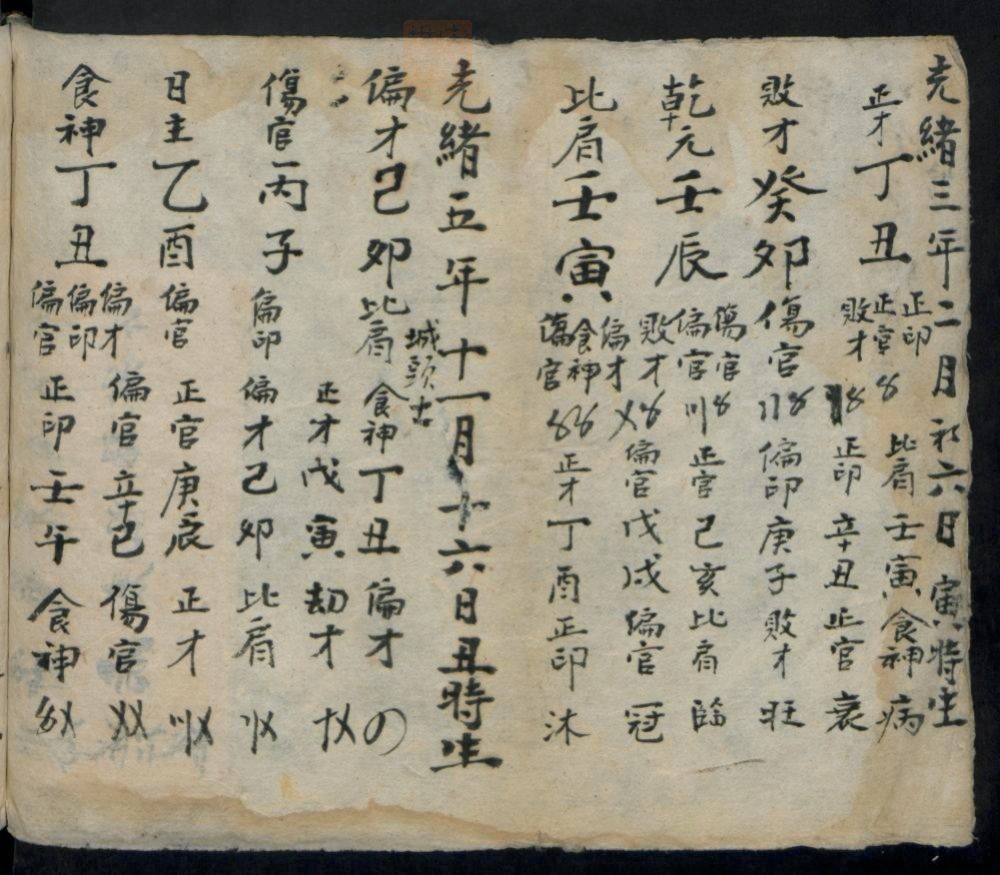 光緒三年二月初六日寅時生
正才丁丑
正印
正官〥
敗才
〥
比肩壬寅食神病
正印辛丑正官衰
敗才癸卯傷官
〢〥
偏印庚子敗才旺
乾元壬辰
傷官
偏官
〣〥
正官己亥比肩臨
敗才
偏才
〤〥
偏官戊戌偏官冠
比肩壬寅
食神
傷官
〥〥
正才丁酉正印沐
光緒五年十一月十六日丑時生
城頭土
偏才己卯比肩食神丁丑偏才の
正才戊寅劫才十〤
傷官丙子偏印偏才己卯比肩〢〤
日主乙酉偏官正官庚辰正才〣〤
偏才
偏官辛巳傷官〤〤
食神丁丑
偏印
偏官
正印壬午食神〥〤